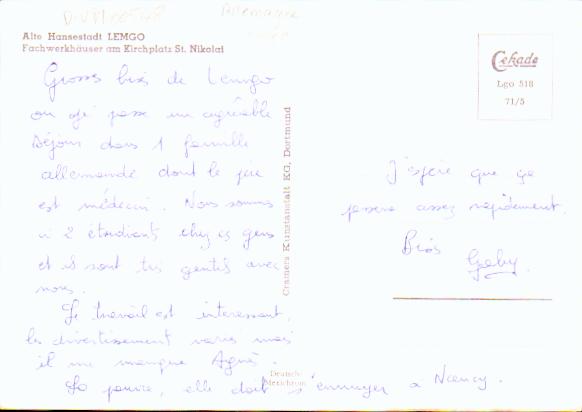 Allemagne
Alte Hansestadt LEMGO
Fachwerkhäuser am Kirchplatz St. Nikolai
Grosses bises de Lemgo
où je passe un agréable
séjour dans 1 famille
allemande dont le père
est médecin. Nous sommes
2 étudiants chez ces gens
et ils sont très gentils avec
nous.
Le travail est interessant,
les divertissement variés mais
il me manque Agnès.
La pauvre, elle doit s'ennuyer à Nancy.
J'espère que ça
passera assez rapidement.
Bises
Gaby.
Cekade
Lgo 518
71/5
Cramers Kunstanstalt KG, Dortmund
Deutsche